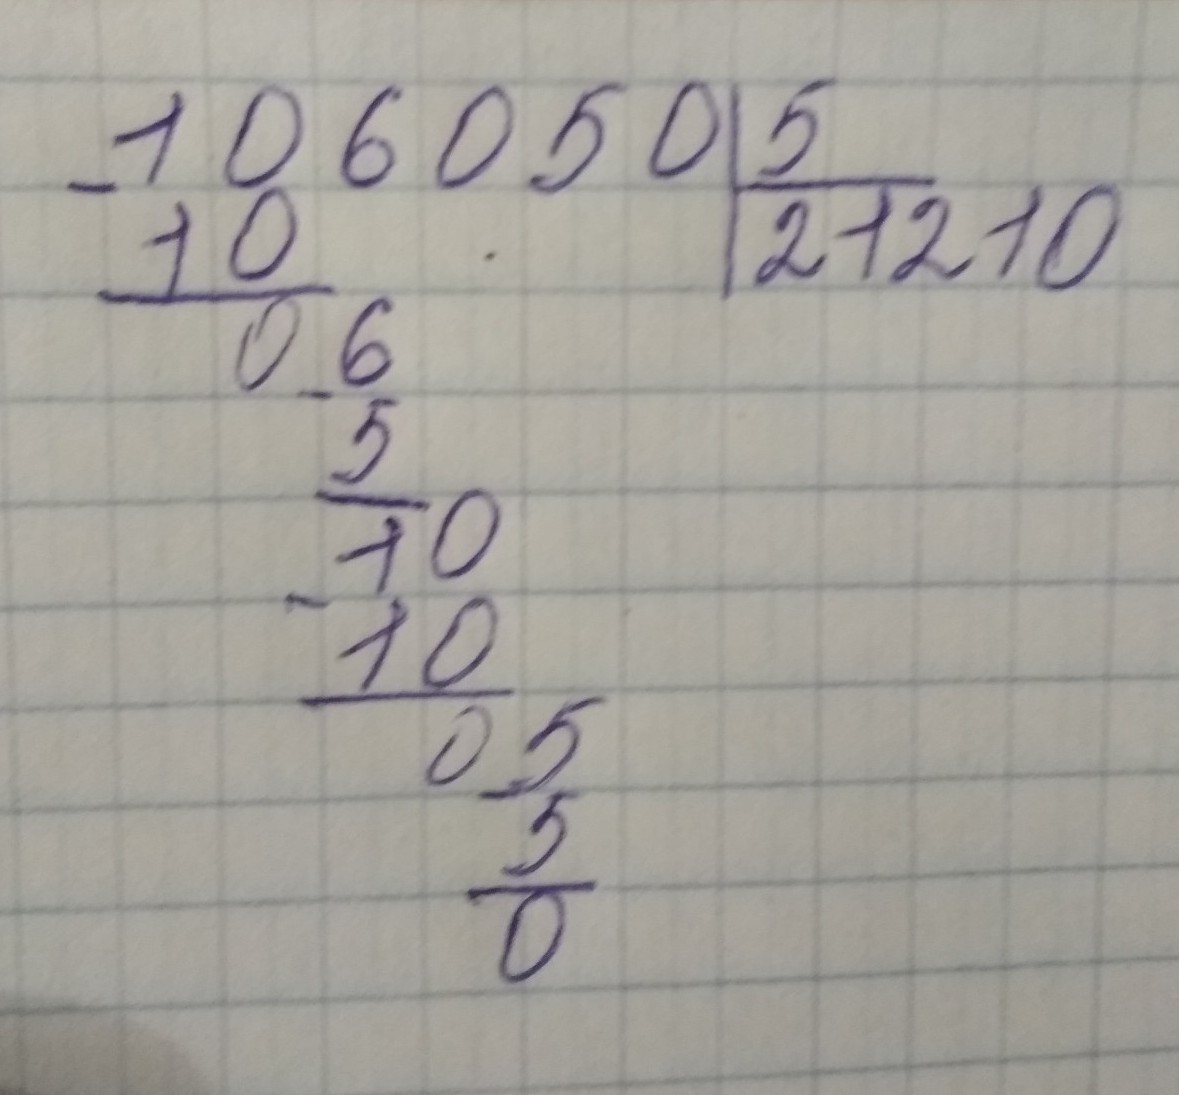 -106050|5
10 21210
06
-5
10
-10
05
-5
0